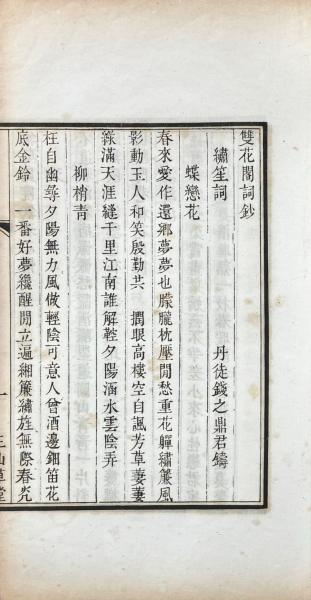 雙花閣詞鈔
繡笙詞　丹徒錢之鼎君鑄
蝶戀花
春來愛作還鄉夢夢也朦朧枕壓閒愁重花嚲繡簾風
影動玉人和笑殷勤共　撊眼高樓空自諷芳草萋萋
綠滿天涯縫千里江南誰解鞚夕陽酒水雲陰弄
柳梢青
枉自幽尋夕陽無力風做輕陰可意人曾酒邊鈿笛花
底金鈴　一番好夢纔醒閒立遍緗簾繡旌無際春光
一